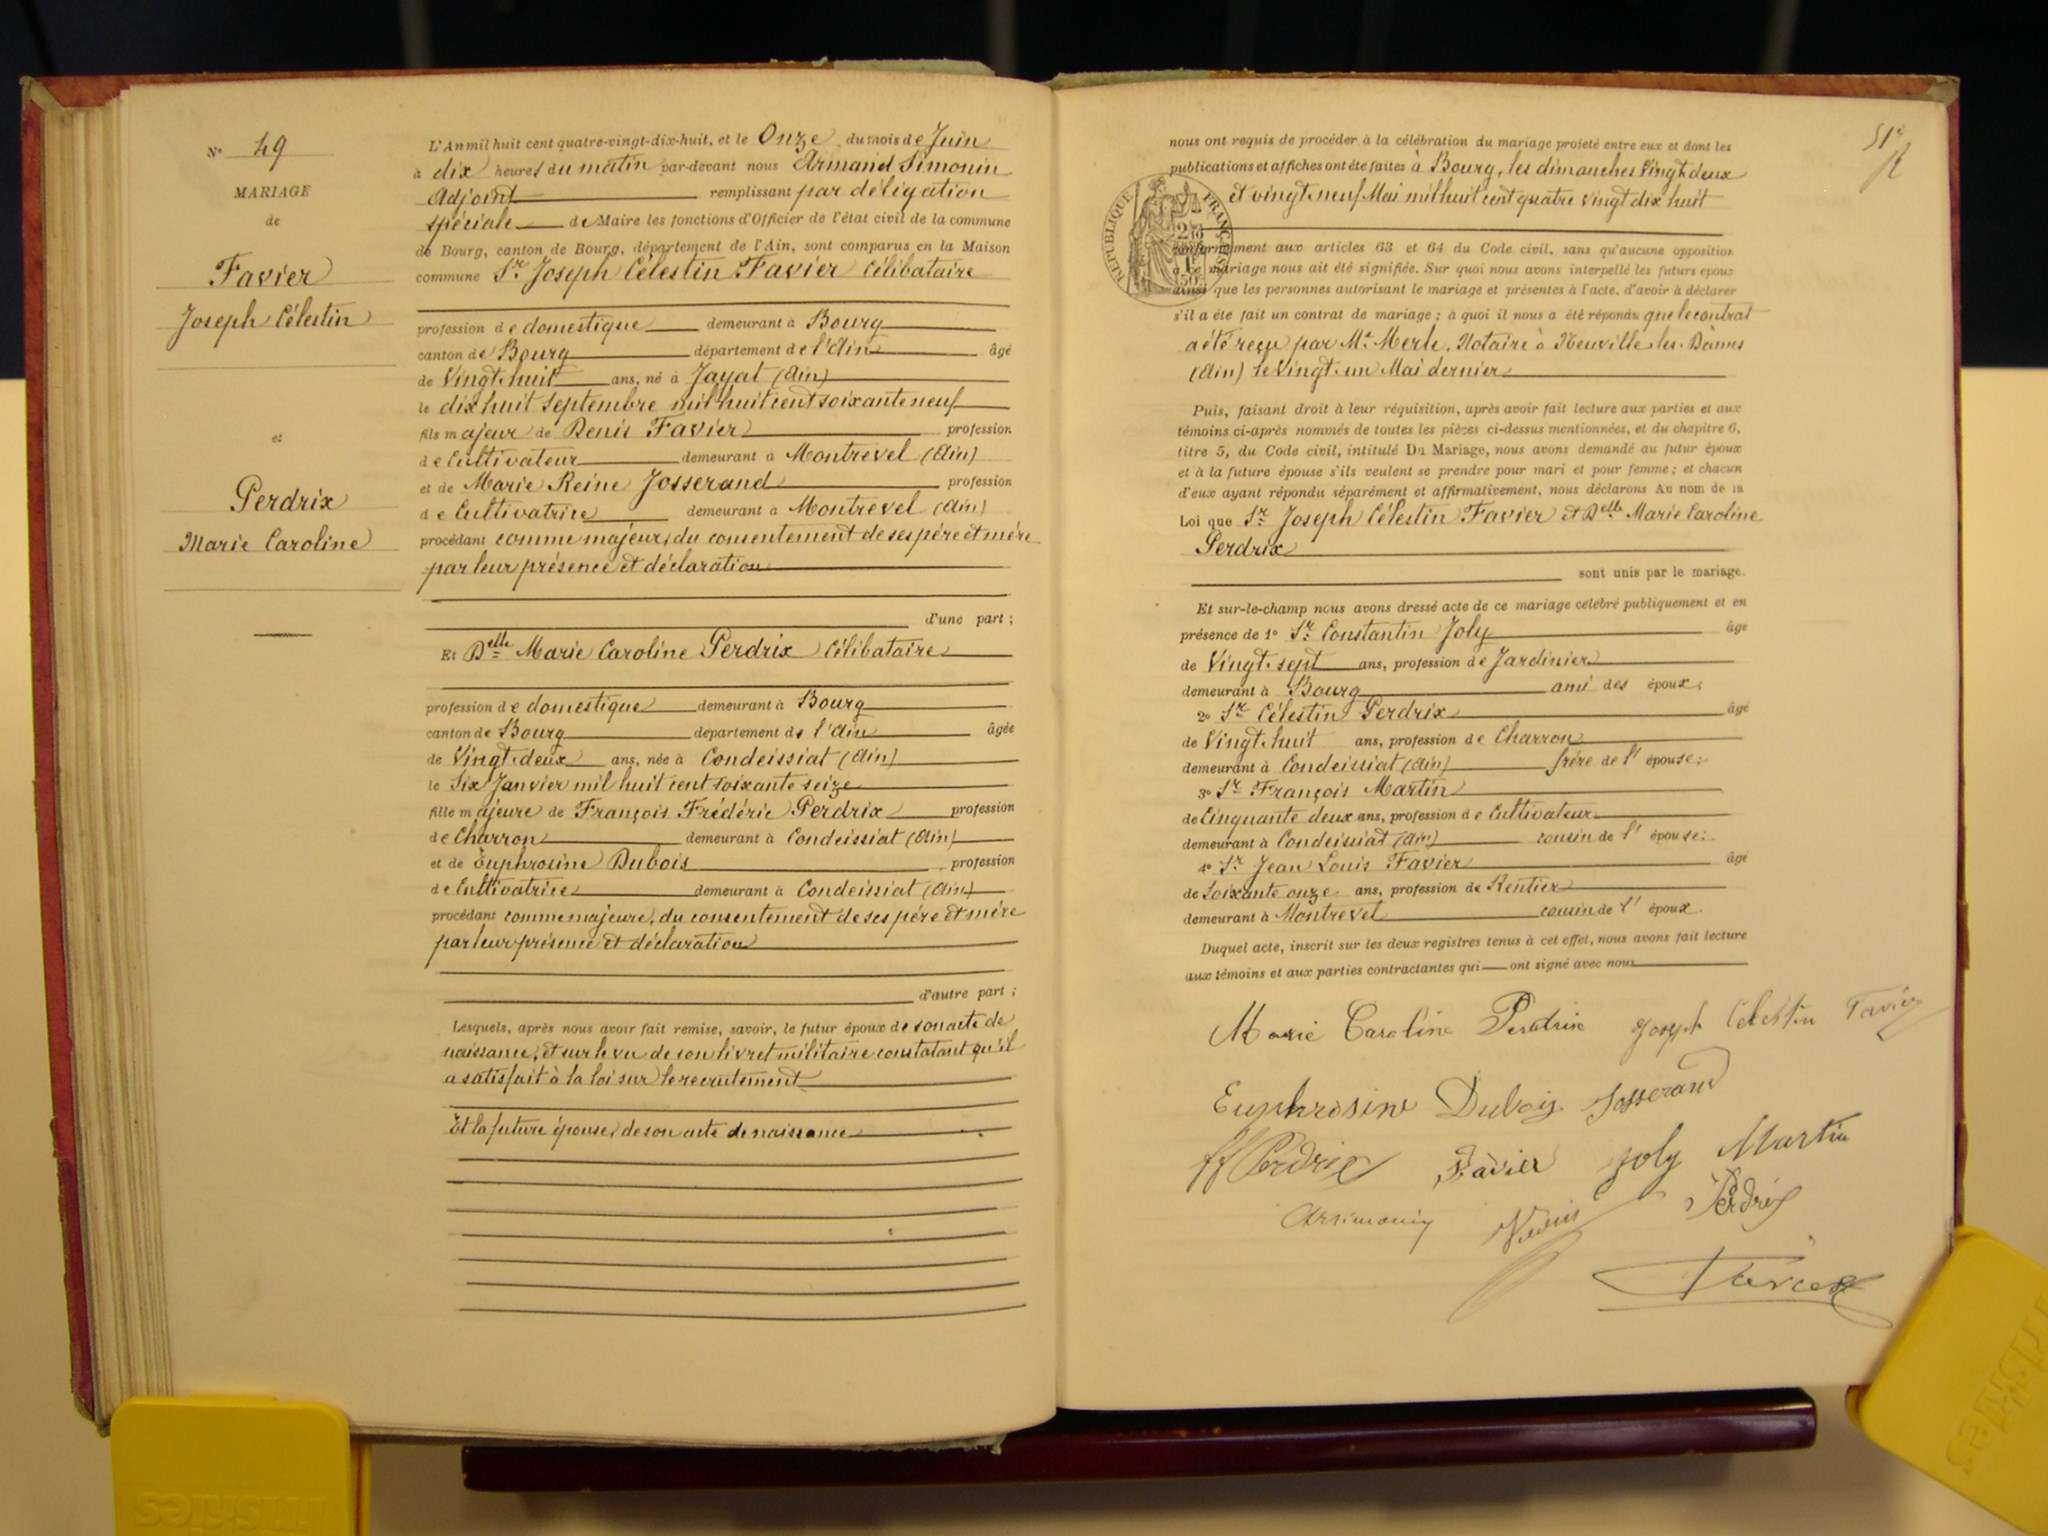 N° 49
MARIAGE
de
Favier
Joseph Célestin
et
Perdrix
Marie Caroline
L'An mil huit cent quatre-vingt-dix-huit, et le Onze du mois de Juin
à dix heures du matin par-devant nous Armand Simonin
Adjoint remplissant par délégation
spéciale de Maire les fonctions d'Officier de l'état civil de la commune
de Bourg, canton de Bourg, département de l'Ain, sont comparus en la Maison
commune Sr Joseph Célestin Favier Célibataire
profession de domestique demeurant à Bourg
canton de Bourg département de l'Ain âgé
de Vingt-huit ans, né à Jayat (Ain)
le dix huit Septembre mil huit cent soixante neuf
fils majeur de Denis Favier profession
de Cultivateur demeurant à Montrevel (Ain)
et de Marie Reine Josserand profession
de Cultivatrice demeurant à Montrevel (Ain)
procédant comme majeur, du consentement de ses père et mère
par leur présence et déclaration
d'une part ;
Et Delle Marie Caroline Perdrix Célibataire
profession de domestique demeurant à Bourg
canton de Bourg département de l'Ain âgée
de Vingt-deux ans, née à Condeissiat (Ain)
le Six Janvier mil huit cent soixante seize
fille majeure de François Frédéric Perdrix profession
de Charron demeurant à Condeissiat (Ain)
et de Euphrosine Dubois profession
de Cultivatrice demeurant à Condeissiat (Ain)
procédant comme majeure, du consentement de ses père et mère
par leur présence et déclaration
d'autre part ;
Lesquels, après nous avoir fait remise, savoir, le futur époux de son acte de
naissance, et sur le vu de son livret militaire constatant qu'il
a satisfait à la loi sur le recrutement
Et la future épouse, de son acte de naissance
51e
nous ont requis de procéder à la célébration du mariage projeté entre eux et dont les
publications et affiches ont été faites à Bourg, les dimanches Vingt deux
et vingt-neuf Mai mil huit cent quatre vingt dix huit
RÉPUBLIQUE FRANÇAISE
conformément aux articles 63 et 64 du Code civil, sans qu'aucune opposition
à ce mariage nous ait été signifiée. Sur quoi nous avons interpellé les futurs époux
ainsi que les personnes autorisant le mariage et présentes à l'acte, d'avoir à déclarer
s'il a été fait un contrat de mariage ; à quoi il nous a été répondu que le contrat
a été reçu par Me Merle, Notaire à Neuville-les-Dames
(Ain) le Vingt-un Mai dernier
Puis, faisant droit à leur réquisition, après avoir fait lecture aux parties et aux
témoins ci-après nommés de toutes les pièces ci-dessus mentionnées, et du chapitre 6,
titre 5, du Code civil, intitulé Du Mariage, nous avons demandé au futur époux
et à la future épouse s'ils veulent se prendre pour mari et pour femme ; et chacun
d'eux ayant répondu séparément et affirmativement, nous déclarons Au nom de la
Loi que Sr Joseph Célestin Favier et Delle Marie Caroline
Perdrix
sont unis par le mariage.
Et sur-le-champ nous avons dressé acte de ce mariage célébré publiquement et en
présence de 1° Sr Constantin Joly âgé
de Vingt-sept ans, profession de Jardinier
demeurant à Bourg ami des époux ;
2° Sr Célestin Perdrix âgé
de Vingt-huit ans, profession de Charron
demeurant à Condeissiat (Ain) frère de l'épouse ;
3° Sr François Martin
de Cinquante deux ans, profession de Cultivateur
demeurant à Condeissiat (Ain) cousin de l'épouse ;
4° Sr Jean Louis Favier âgé
de Soixante onze ans, profession de Rentier
demeurant à Montrevel cousin de l'époux.
Duquel acte, inscrit sur les deux registres tenus à cet effet, nous avons fait lecture
aux témoins et aux parties contractantes qui ont signé avec nous
Marie Caroline Perdrix Joseph Célestin Favier
Euphrosine Dubois Josserand
ff Perdrix Favier Joly Martin
Arsimonin Perdrix
Favier